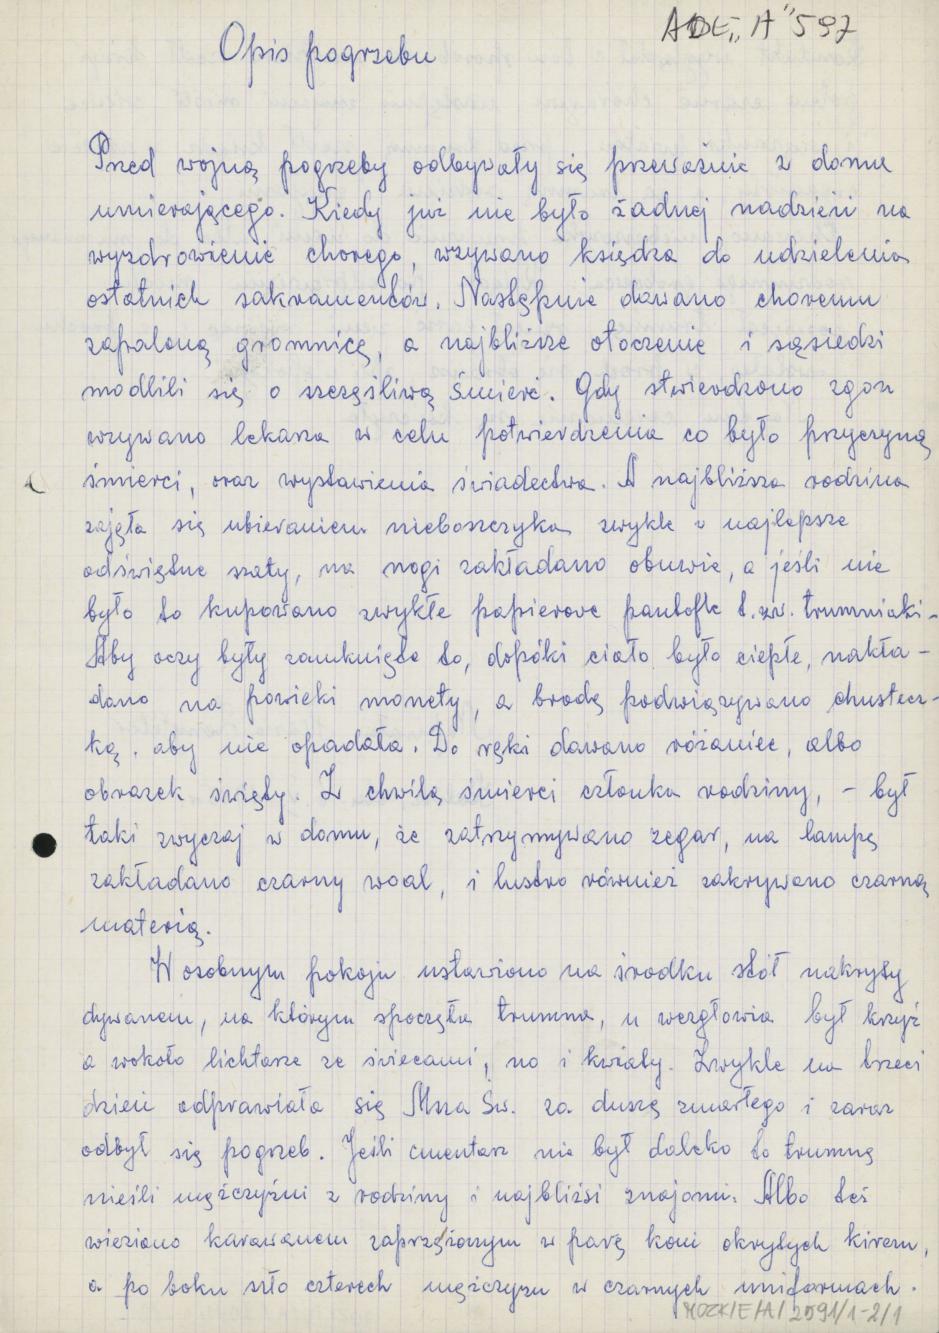 ADE „A" 597
Opis pogrzebu
Przed wojną pogrzeby odbywały się przeważnie z domu
umierającego. Kiedy już nie było żadnej nadzieii na
wyzdrowienie chorego, wzywano księdza do udzielenia
ostatnich sakramentów. Następnie dawano choremu
zapaloną gromnicę, a najbliższe otoczenie i sąsiedzi
modlili się o szczęśliwą śmierć. Gdy stwierdzono zgon
wzywano lekarza w celu potwierdzenia co było przyczyną
śmierci, oraz wystawienia świadectwa. A najbliższa rodzina
zajęła się ubieraniem nieboszczyka zwykle w najlepsze
odświętne szaty, na nogi zakładano obuwie, a jeśli nie
było to kupowano zwykłe papierowe pantofle t.zw. trumniaki-
Aby oczy były zamknięte to, dopóki ciało było ciepłe, nakła-
dano na powieki monety, a brodę podwiązywano chustecz-
ką. aby nie opadała. Do ręki dawano różaniec, albo
obrazek święty. Z chwilą śmierci członka rodziny, - był
taki zwyczaj w domu, że zatrzymywano zegar, na lampę
zakładano czarny woal, i lustro również zakrywano czarną
materią.
W osobnym pokoju ustawiono na środku stół nakryty
dywanem, na którym spoczęła trumna, u wezgłowia był krzyż
a wokoło lichtarze ze świecami, no i kwiaty. Zwykle na trzeci
dzień odprawiała się Msza Św. za duszę zmarłego i zaraz
odbył się pogrzeb. Jeśli cmentarz nie był daleko to trumnę
nieśli mężczyźni z rodziny i najbliżsi znajomi. Albo też
wieziono karawanem zaprzężonym w parę koni okrytych kirem,
a po boku szło czterech mężczyzn w czarnych uniformach.
MOZK/E/A/2591/1-2/1